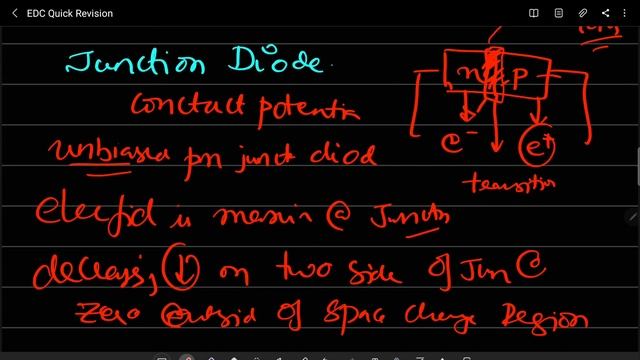 EDC Quick Revision
Junction Diode.
n p
contact potentia
e⁻ e⁺
unbiased pn junct diod
transition
Elecfid is maxim @ Junctn
decreasing ↓ on two side of Jun C
Zero outsid of Space charge Region